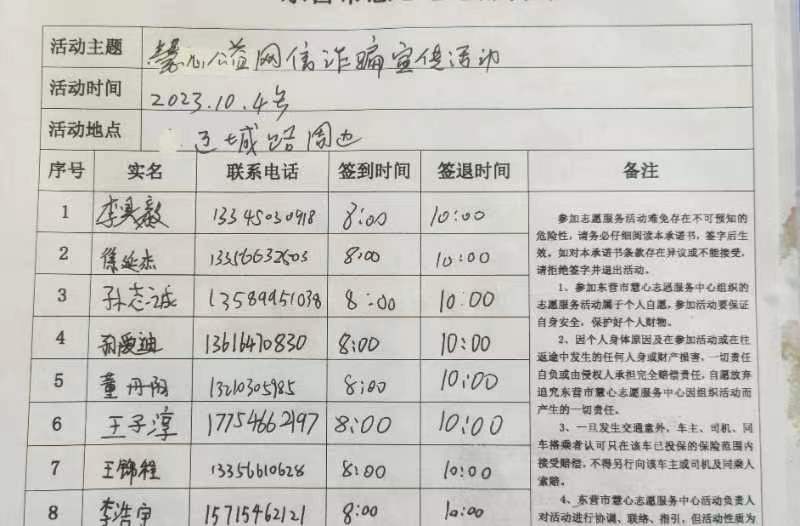 活动主题 慧心公益网信诈骗宣传活动
活动时间 2023.10.4号
活动地点 城路周边
序号 实名 联系电话 签到时间 签退时间 备注
1 李奥毅 13345030918 8:00 10:00
2 徐延杰 8:00 10:00
3 孙志诚 13589951038 8:00 10:00
4 爱迪 13616470830 8:00 10:00
5 董丹阳 13210305985 8:00 10:00
6 王子淳 17754662197 8:00 10:00
7 王锦程 13356610628 8:00 10:00
8 李浩宇 15715462121 8:00 10:00
参加志愿服务活动难免存在不可预知的
危险性，请务必仔细阅读本承诺书，签字后生
效。如对本承诺书条款存在异议或不能接受，
请拒绝签字并退出活动。
1、参加东营市慧心志愿服务中心组织的
志愿服务活动属于个人自愿，参加活动要保证
自身安全，保护好个人财物。
2、因个人身体原因及在参加活动或在往
返途中发生的任何人身或财产损害，一切责任
自负或由侵权人承担完全赔偿责任，自愿放弃
追究东营市慧心志愿服务中心因组织活动而
产生的一切责任。
3、一旦发生交通意外，车主、司机、同
车搭乘者认可只在该车已投保的保险范围内
接受赔偿，不得另行向该车主或司机及同乘人
索赔。
4、东营市慧心志愿服务中心活动负责人
对活动进行协调、联络、指引，但活动性质为